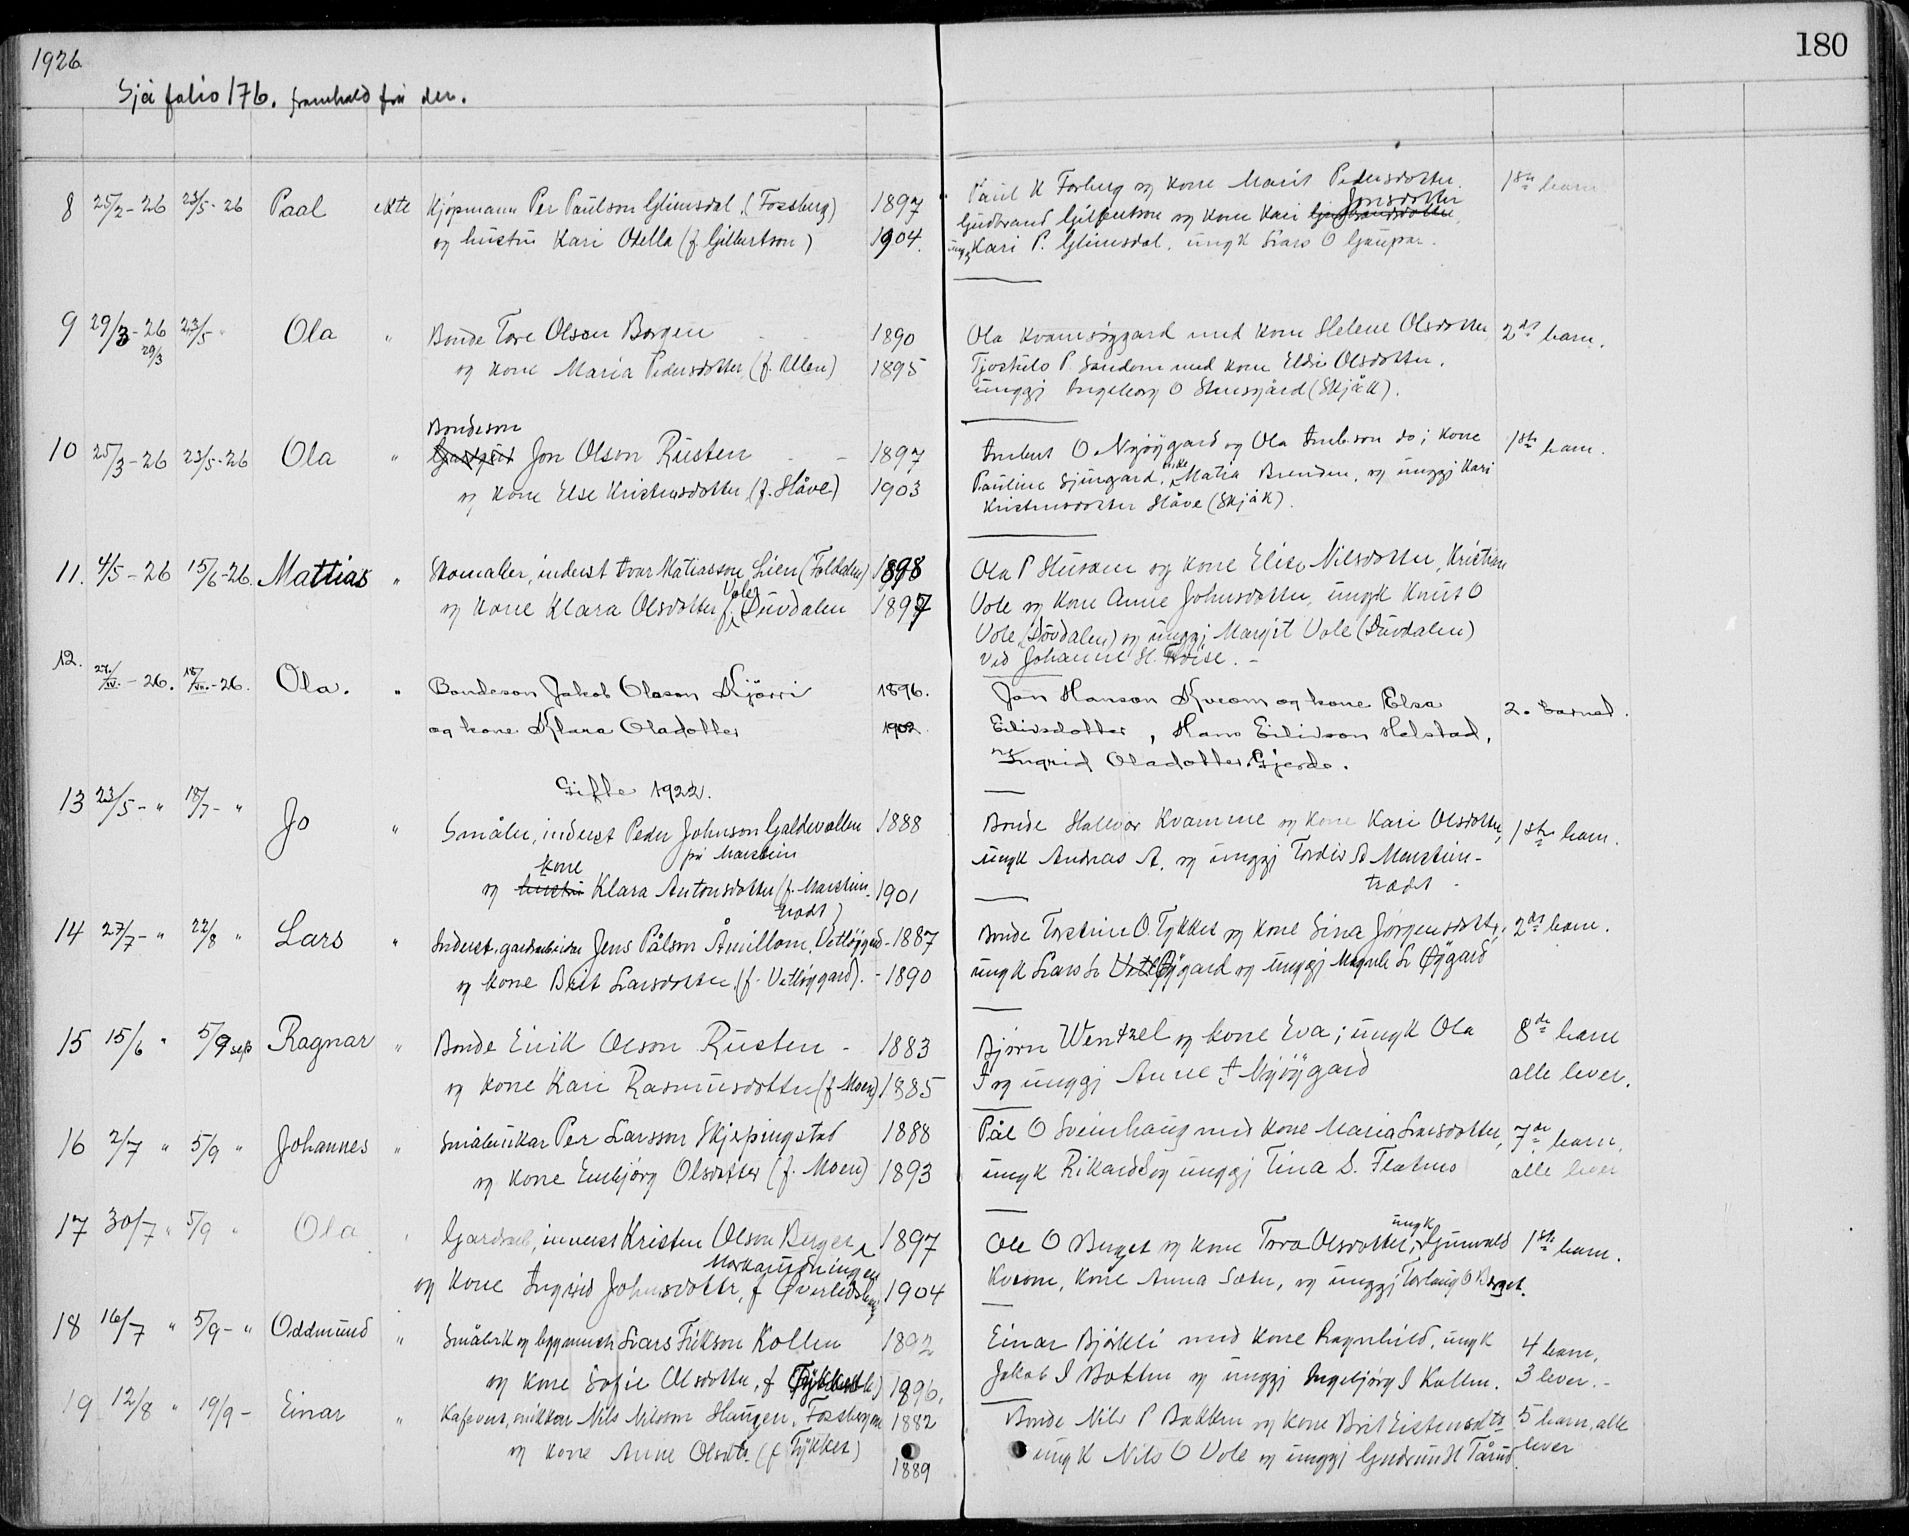 1926
180
Sjå folio 176. framhald frå der.
8 25/2-26 23/5-26 Paal ekte Kjøpmann Per Paulson Glimsdal (Fossberg) 1897
og hustru Kari Otella (f. Gilbertson) 1904.
Paul K Forberg og kone Marit Pedersdotter. 1ste barn
Jonsdotter
Gudbrand Gilbertson og kone Kari Gudbrandsdotter,
ungk Kari P. Glimsdal, ungk Lars O Gaupar.
9 29/3-26 23/5 " Ola " Bonde Tore Olson Borgen 1890
29/3
og kone Maria Pedersdotter (f. Øllen) 1895
Ola Kvamsøygard med kone Helene Olsdotter, 2det barn.
Tjostulv P. Sandom med kone Eldri Olsdotter.
unggj Ingeborg O Stensgård (Skjåk).
Bondeson
10 25/3-26 23/5-26 Ola " Jon Olson Rusten 1897
og kone Else Kristensdotter (f. Håve) 1903
Imbert O. Nyøygard og Ola Imbson do; kone 1ste barn.
Pauline Sjurgard, enke Matia Brenden, og unggj Kari
Kristensdotter Håve (Skjåk).
11. 4/5-26 15/6-26. Mattias " Skomaker, inderst Ivar Matiasson Lien (Foldalen) 1898
Vole
og kone Klara Olsdotter f. Duvdalen 1897
Ola P Husom og kone Elise Nilsdotter, Kristian
Vole og kone Anne Johnsdotter, ungk Knut O
Vole (Dovdalen) og unggj Margit Vole (Duvdalen)
ved Johanne H. Froise.
12. 27/IV.-26. 18/VII.-26. Ola. " Bondeson Jakob Olason Kjörri 1896.
og kone Klara Oladotter 1902.
Jon Hanson Kveom og kone Elsa
Eilivsdotter, Hans Eilivson Helstad, 2. barnet.
og Ingrid Oladotter Gjerde.
Gifte 1922.
13 23/5-" 18/7-" Jo " Småbr, inderst Peder Johnson Galdevollen 1888
frå Marstein
kone
og hustru Klara Antonsdotter (f. Marstein- 1901
trødt)
Bonde Hallvor Kvamme og kone Kari Olsdotter, 1ste barn.
ungk Andreas A. og unggj Tordis A Marstein-
trødt
14 27/7-" 22/8 " Lars " Inderst, gardsarbeidar Jens Pålson Åmillom, Vetløygard - 1887
og kone Brit Larsdotter (f. Vetløygard). - 1890
Bonde Torstein O. Tykket og kone Sina Jørgensdotter, 2det barn.
ungk Lars L Vetløygard og unggj Magnhi L Øygard
15 15/6 " 5/9 sept Ragnar " Bonde Eirik Olson Rusten - 1883
og kone Kari Rasmusdotter (f Moen) 1885
Bjørn Wentzel og kone Eva; ungk Ola 8de barn
I og unggj Anne I Nyøygard alle lever.
16 2/7 " 5/9 " Johannes " Småbrukar Per Larsson Skjepingstad 1888
og kone Embjørg Olsdotter (f. Moen) 1893
Pål O Sveinhaug med kone Maria Larsdotter, 7de barn,
ungk Rikard L og unggj Tina L. Flatmo alle lever
17 30/7 " 5/9 " Ola " Gardsarb, inderst Kristen Olson Berget 1897
Norkampningen
og kone Ingrid Johnsdotter, f Øverlidshaug 1904
ungk
Ole O Berget og kone Tora Olsdotter, Gunvald 1ste barn.
Kveom, kone Anna Sæter, og unggj Torlaug O Berget.
18 16/7 " 5/9-" Oddmund " Småbrk og byggmester Lars Eirikson Kollen 1892
og kone Sofie Olsdotter, f Tykket) 1896.
Einar Bjørkli med kone Ragnhild, ungk 4 barn,
Jakob I Botten og unggj Ingebjørg I Kollen. 3 lever.-
19 12/8 " 19/9- Einar " Kafevert, snikkar Nils Nilsson Haugen, Fossbergom 1882
og kone Anne Olsdtr. (f Tykket) 1889
Bonde Nils P Bakken og kone Brit Eistensdtr 5 barn, alle
ungk Nils O Vole og unggj Gudrun H Tårud. lever